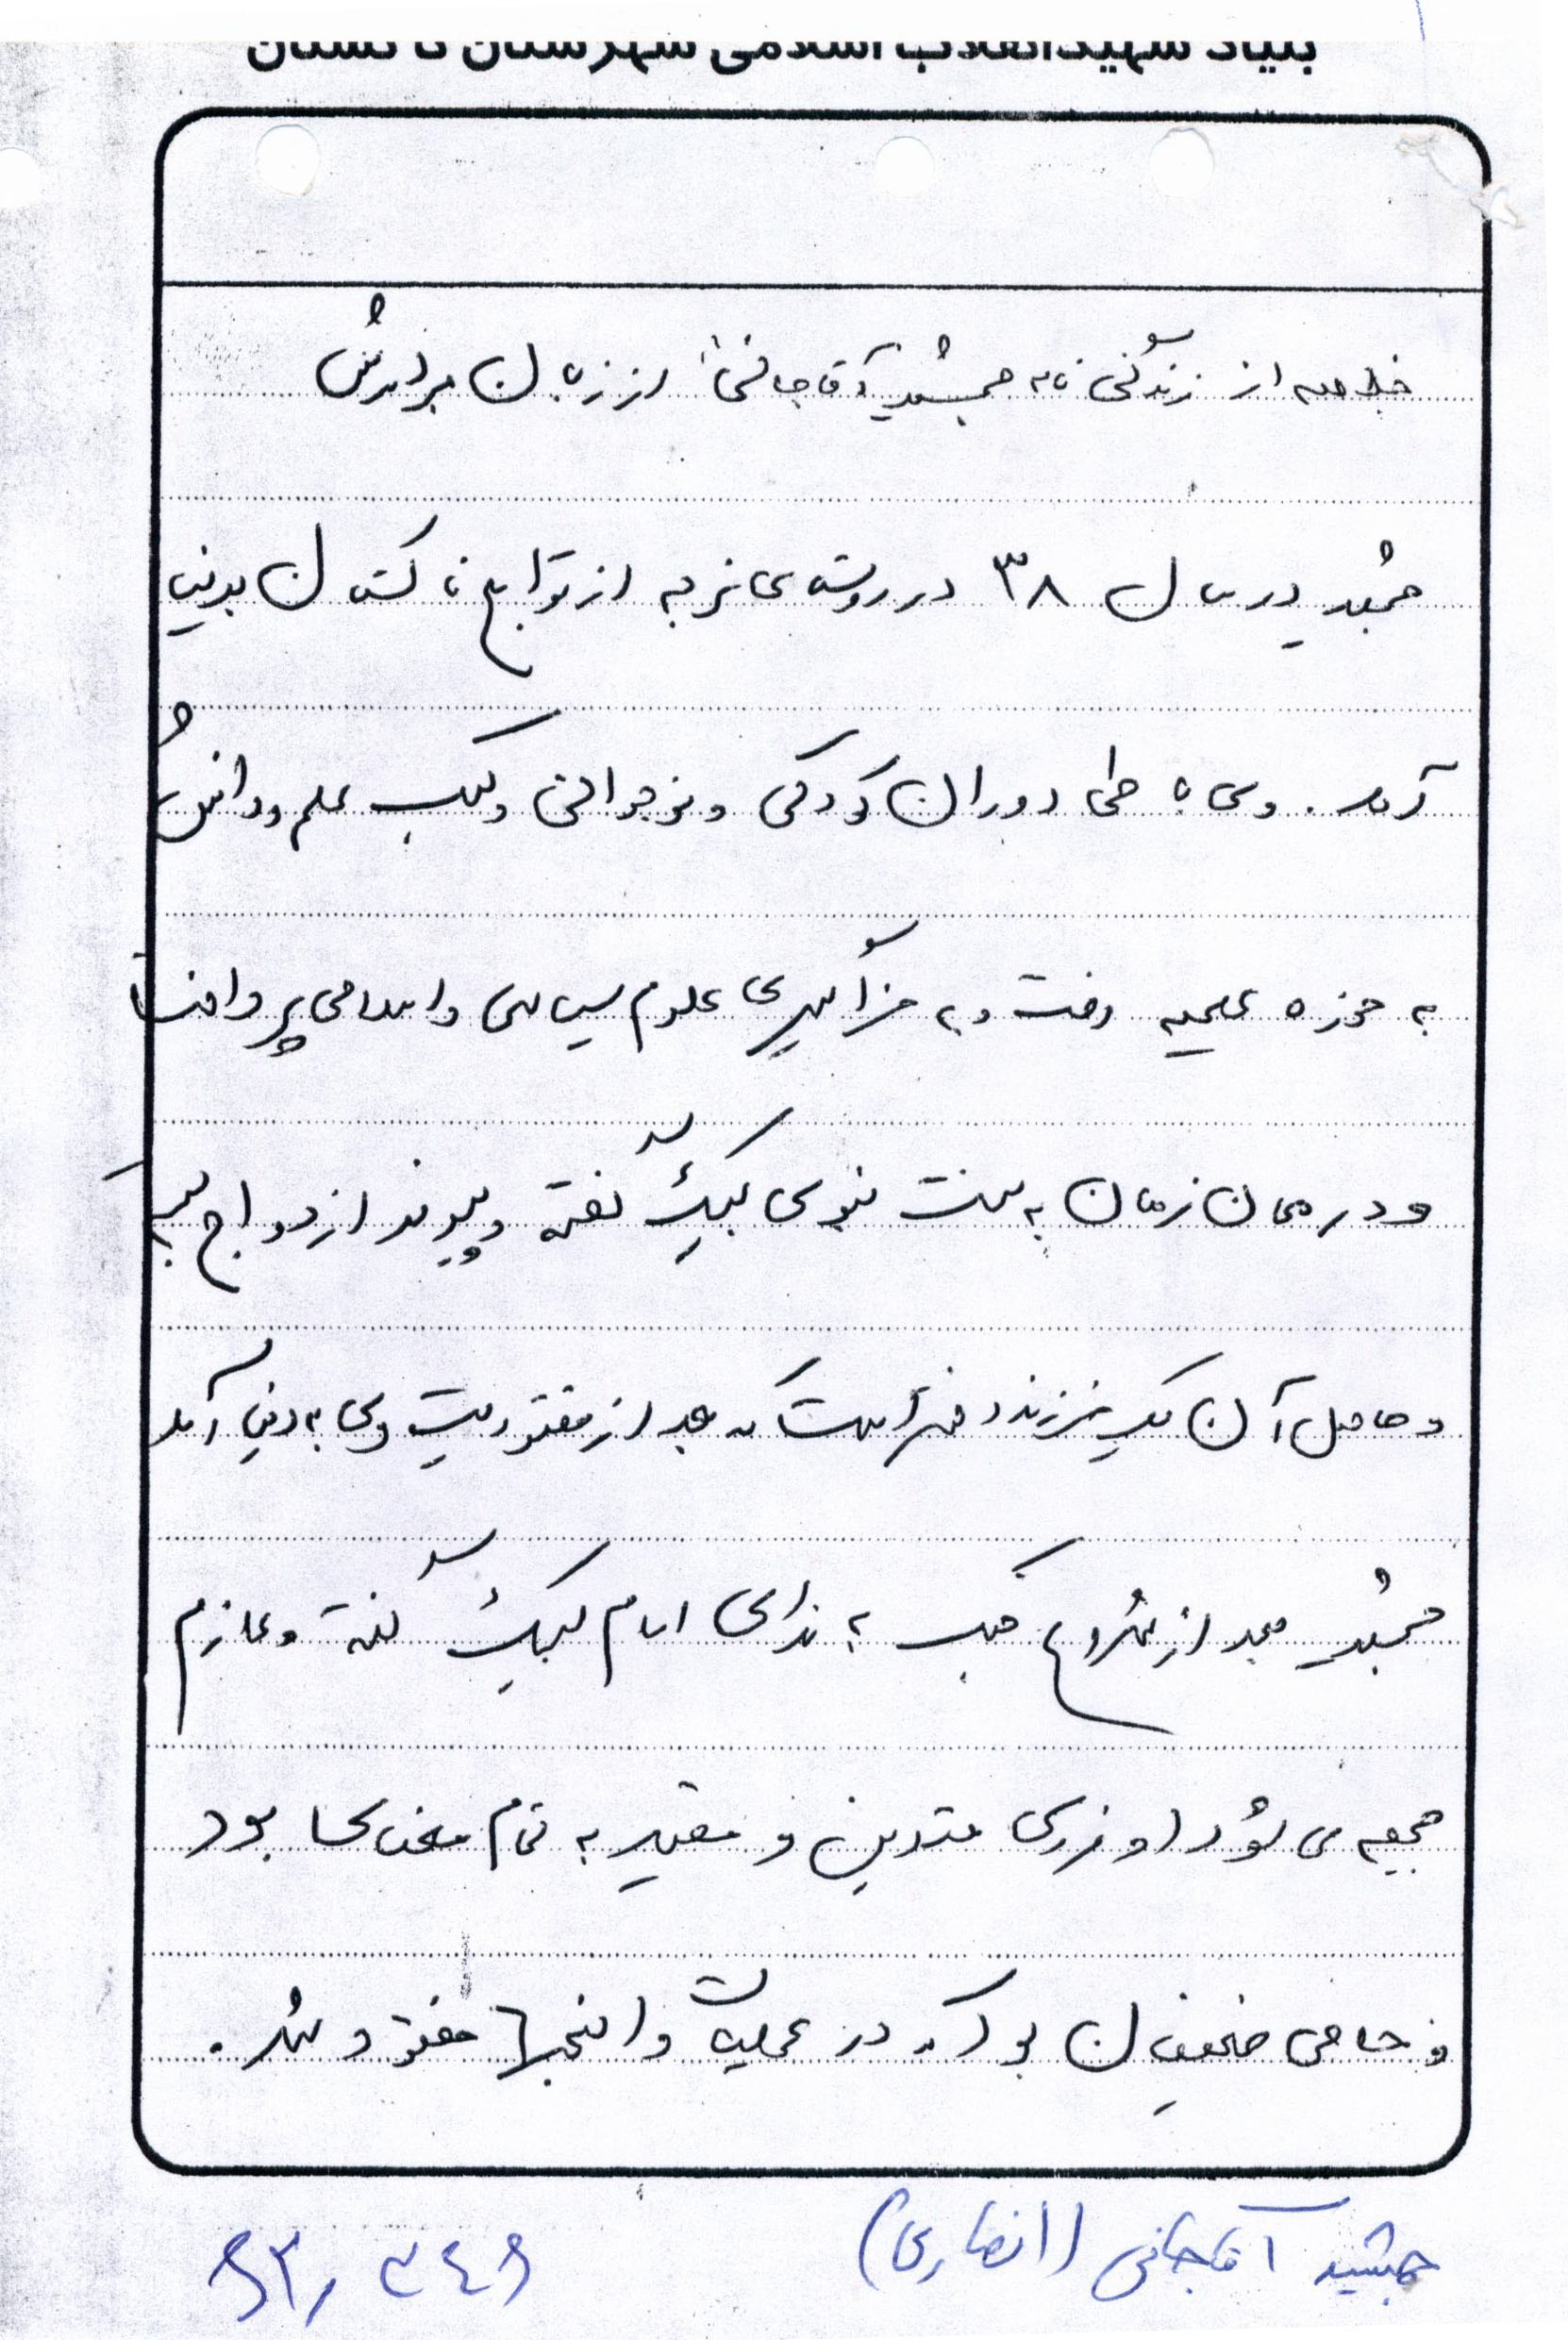 بنیاد شهید انقلاب اسلامی شهرستان تاکستان
خلاصه از زندگی نامه جمشید آقاجانی از زبان برادرش
جمشید در سال ۳۸ در روستای نرجه از توابع تاکستان بدنیا
آمد. وی با طی دوران کودکی و نوجوانی و کسب علم و دانش
به حوزه علمیه رفت و به فراگیری علوم سیاسی و اسلامی پرداخت
و در همان زمان به سنت نبوی لبیک گفته و پیوند ازدواج
و حاصل آن یک فرزند دختر است که بعد از مفقودیت وی به دنیا آمد
جمشید بعد از شروع جنگ به ندای امام لبیک گفته و عازم
جبهه می شود او فردی متدین و مقید به تمام معنا بود
و حامی ضعیفان بود که در عملیات والفجر مفقود شد.
جمشید آقاجانی (انصاری)